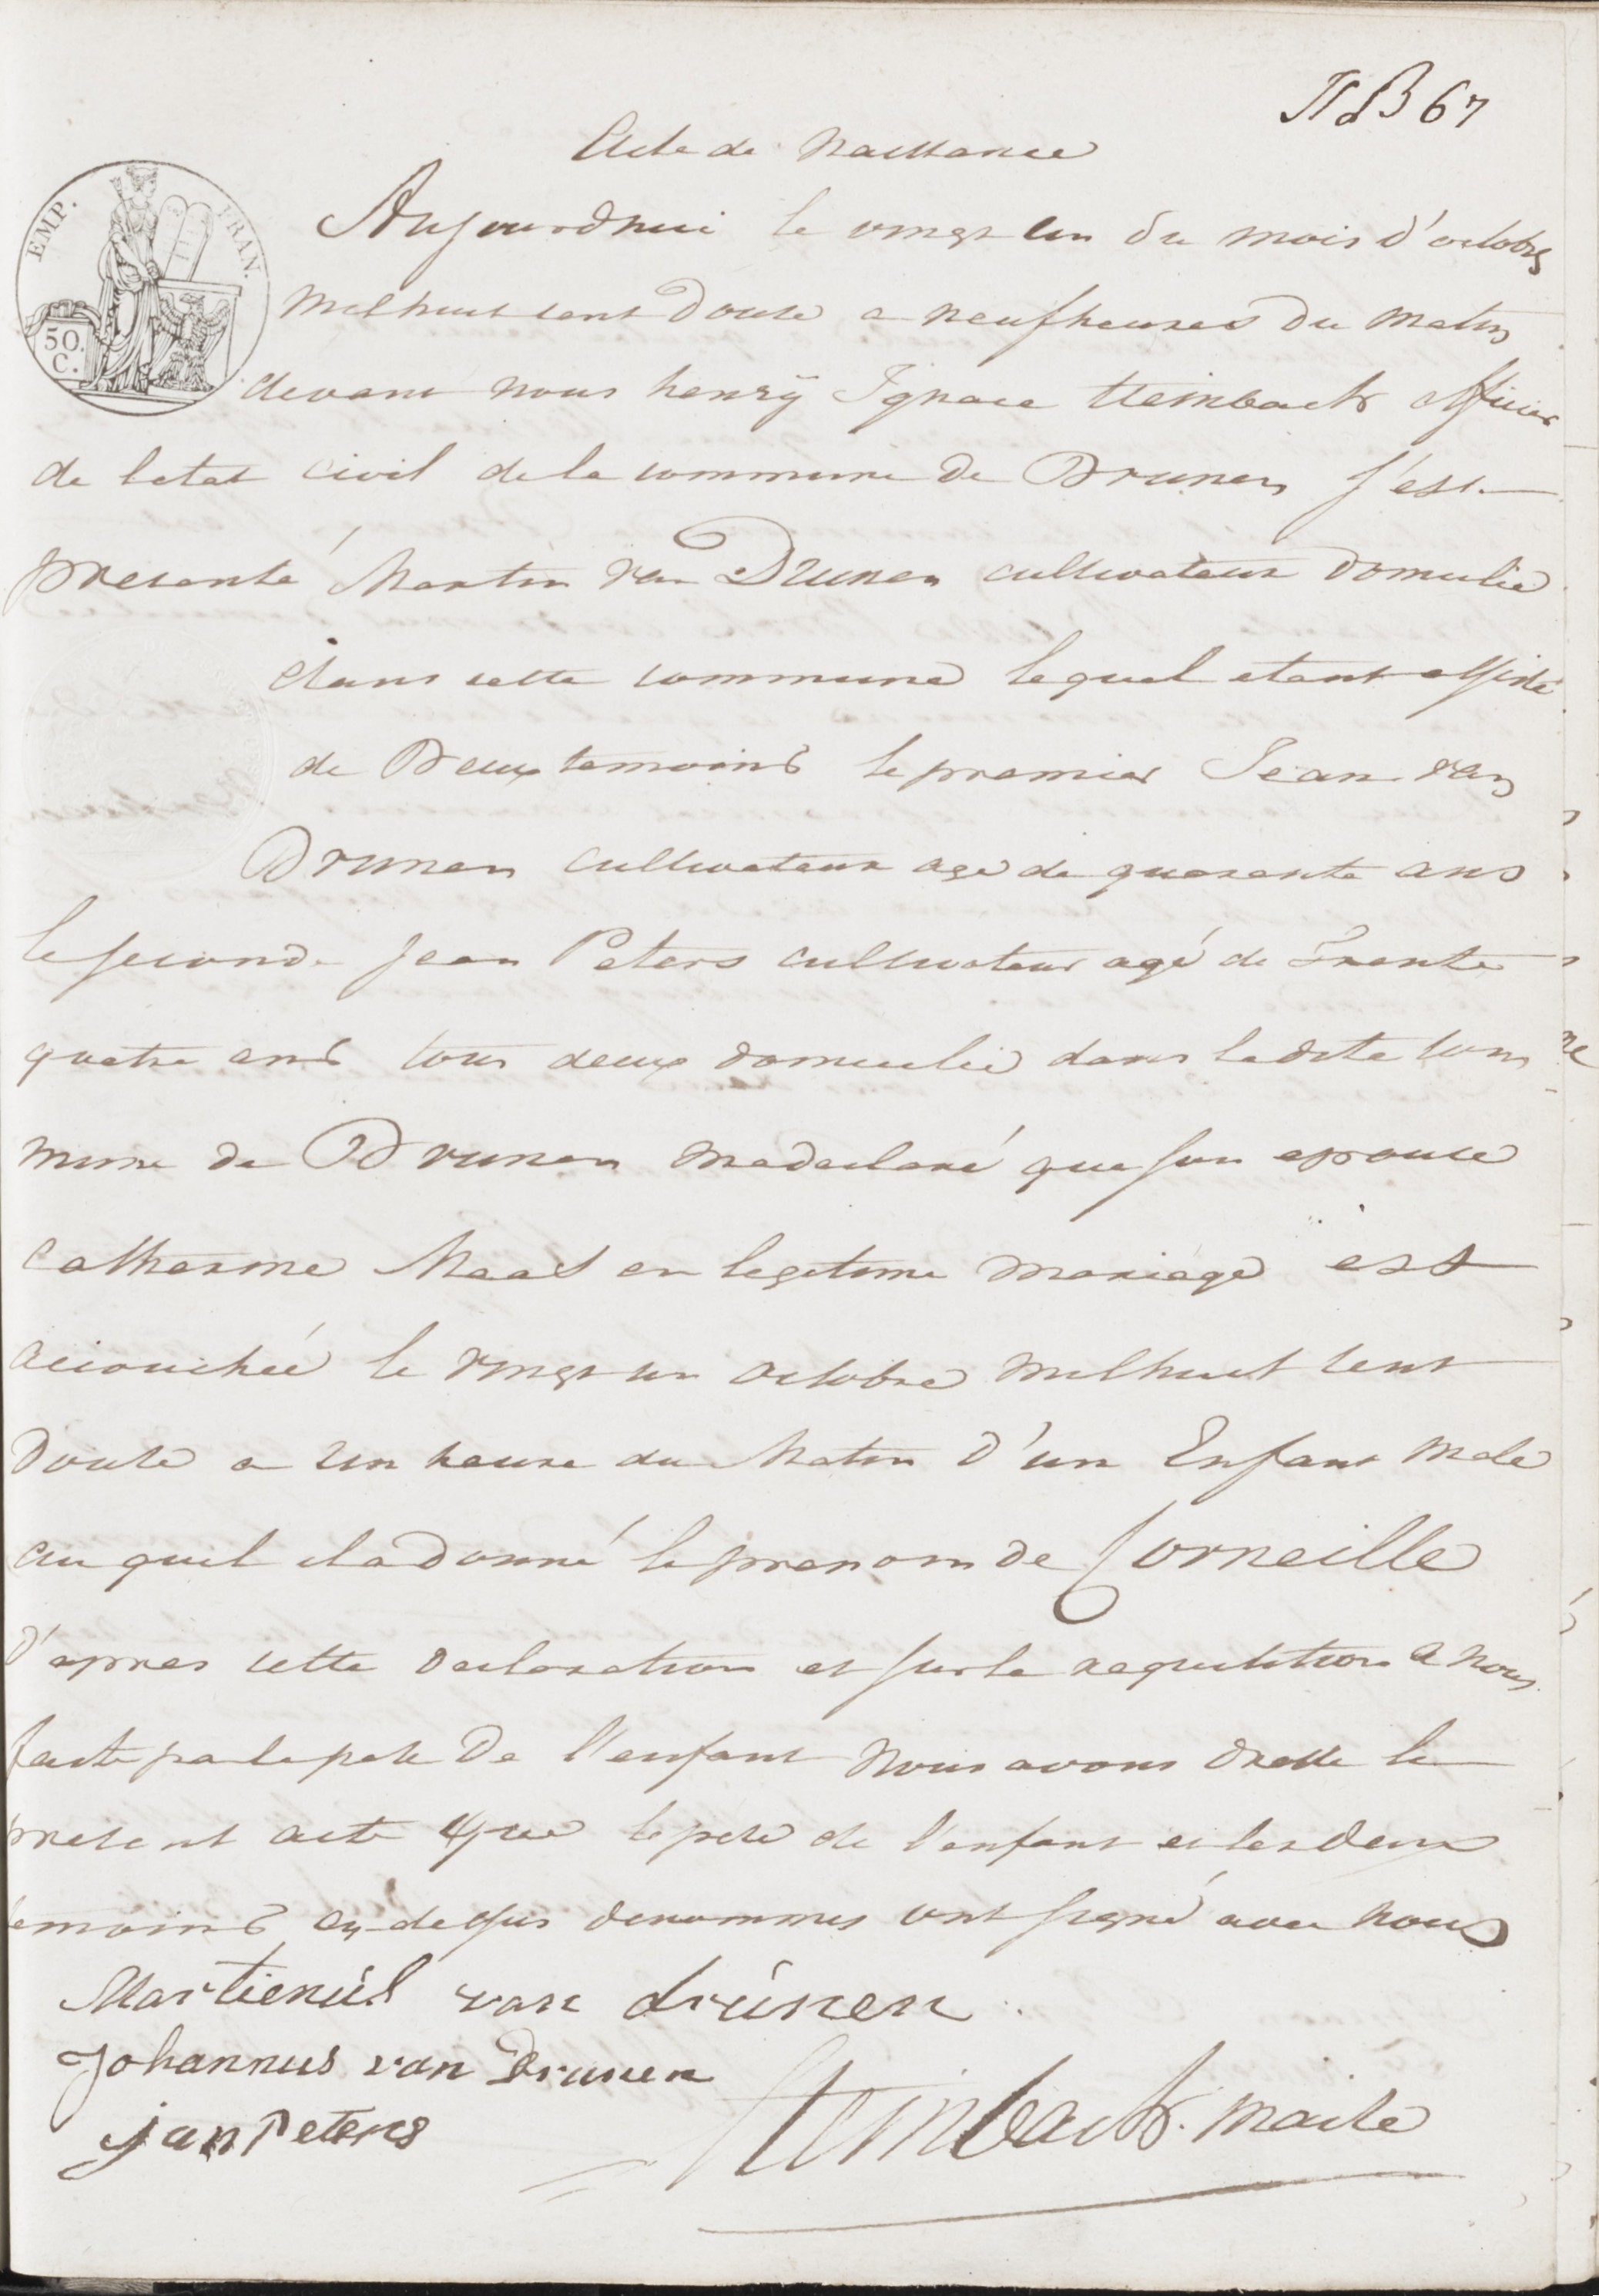 67
Acte de Naissance
EMP. FRAN.
50. C.
Aujourdhui le vingt un du mois d'octobre
mil huit cent douse a neuf heures du matin
devant nous henrÿ Ignace Steinbach officier
de letat civil de la commune de Drunen s'est
presenté Martin van Drunen cultivateur domicilie
dans cette commune lequel etant assisté
de Deux temoins le premier Jean van
Drunen cultivateur age de quarente ans
le second Jean Peters cultivateur agé de Trente
quatre ans tous deux domicilié dans ladite com
mune de Drunen ma declaré que son epouse
Catherine Maas en legetime mariage est
accouchée le vingt un octobre mil huit cent
douse a un heure du Matin d'un Enfant male
au quel il a donné le prenom de Corneille
d'apres cette declaration et sur la requisition a nous
faite par le pere de l'enfant nous avons dresse le
present acte que le pere de l'enfant et les deux
temoins cy dessus denommes ont signé avec nous
Martienús van drúnen
Johannus van Drunen
jan Peters
Steinbach. maire